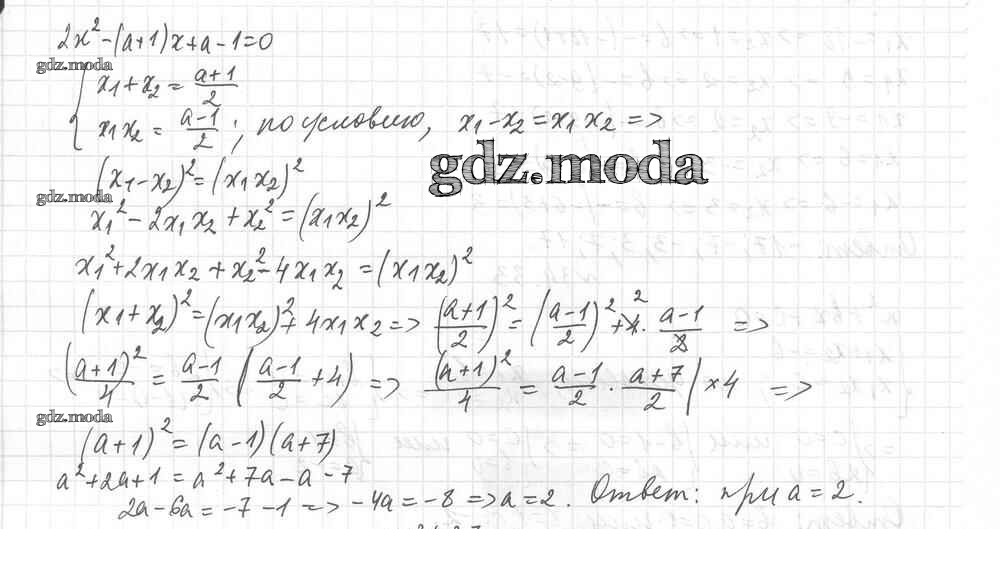 2x² - (a+1)x + a - 1 = 0
gdz.moda
{ x₁ + x₂ = (a+1)/2
x₁x₂ = (a-1)/2 ; по условию, x₁ - x₂ = x₁x₂ =>
gdz.moda
(x₁ - x₂)² = (x₁x₂)²
gdz.moda
x₁² - 2x₁x₂ + x₂² = (x₁x₂)²
x₁² + 2x₁x₂ + x₂² - 4x₁x₂ = (x₁x₂)²
(x₁ + x₂)² = (x₁x₂)² + 4x₁x₂ => ((a+1)/2)² = ((a-1)/2)² + 4² · (a-1)/2 =>
(a+1)²/4 = (a-1)/2 ((a-1)/2 + 4) => (a+1)²/4 = (a-1)/2 · (a+7)/2 | ×4 =>
gdz.moda
(a+1)² = (a-1)(a+7)
a² + 2a + 1 = a² + 7a - a - 7
2a - 6a = -7 - 1 => -4a = -8 => a = 2. Ответ: при a = 2.